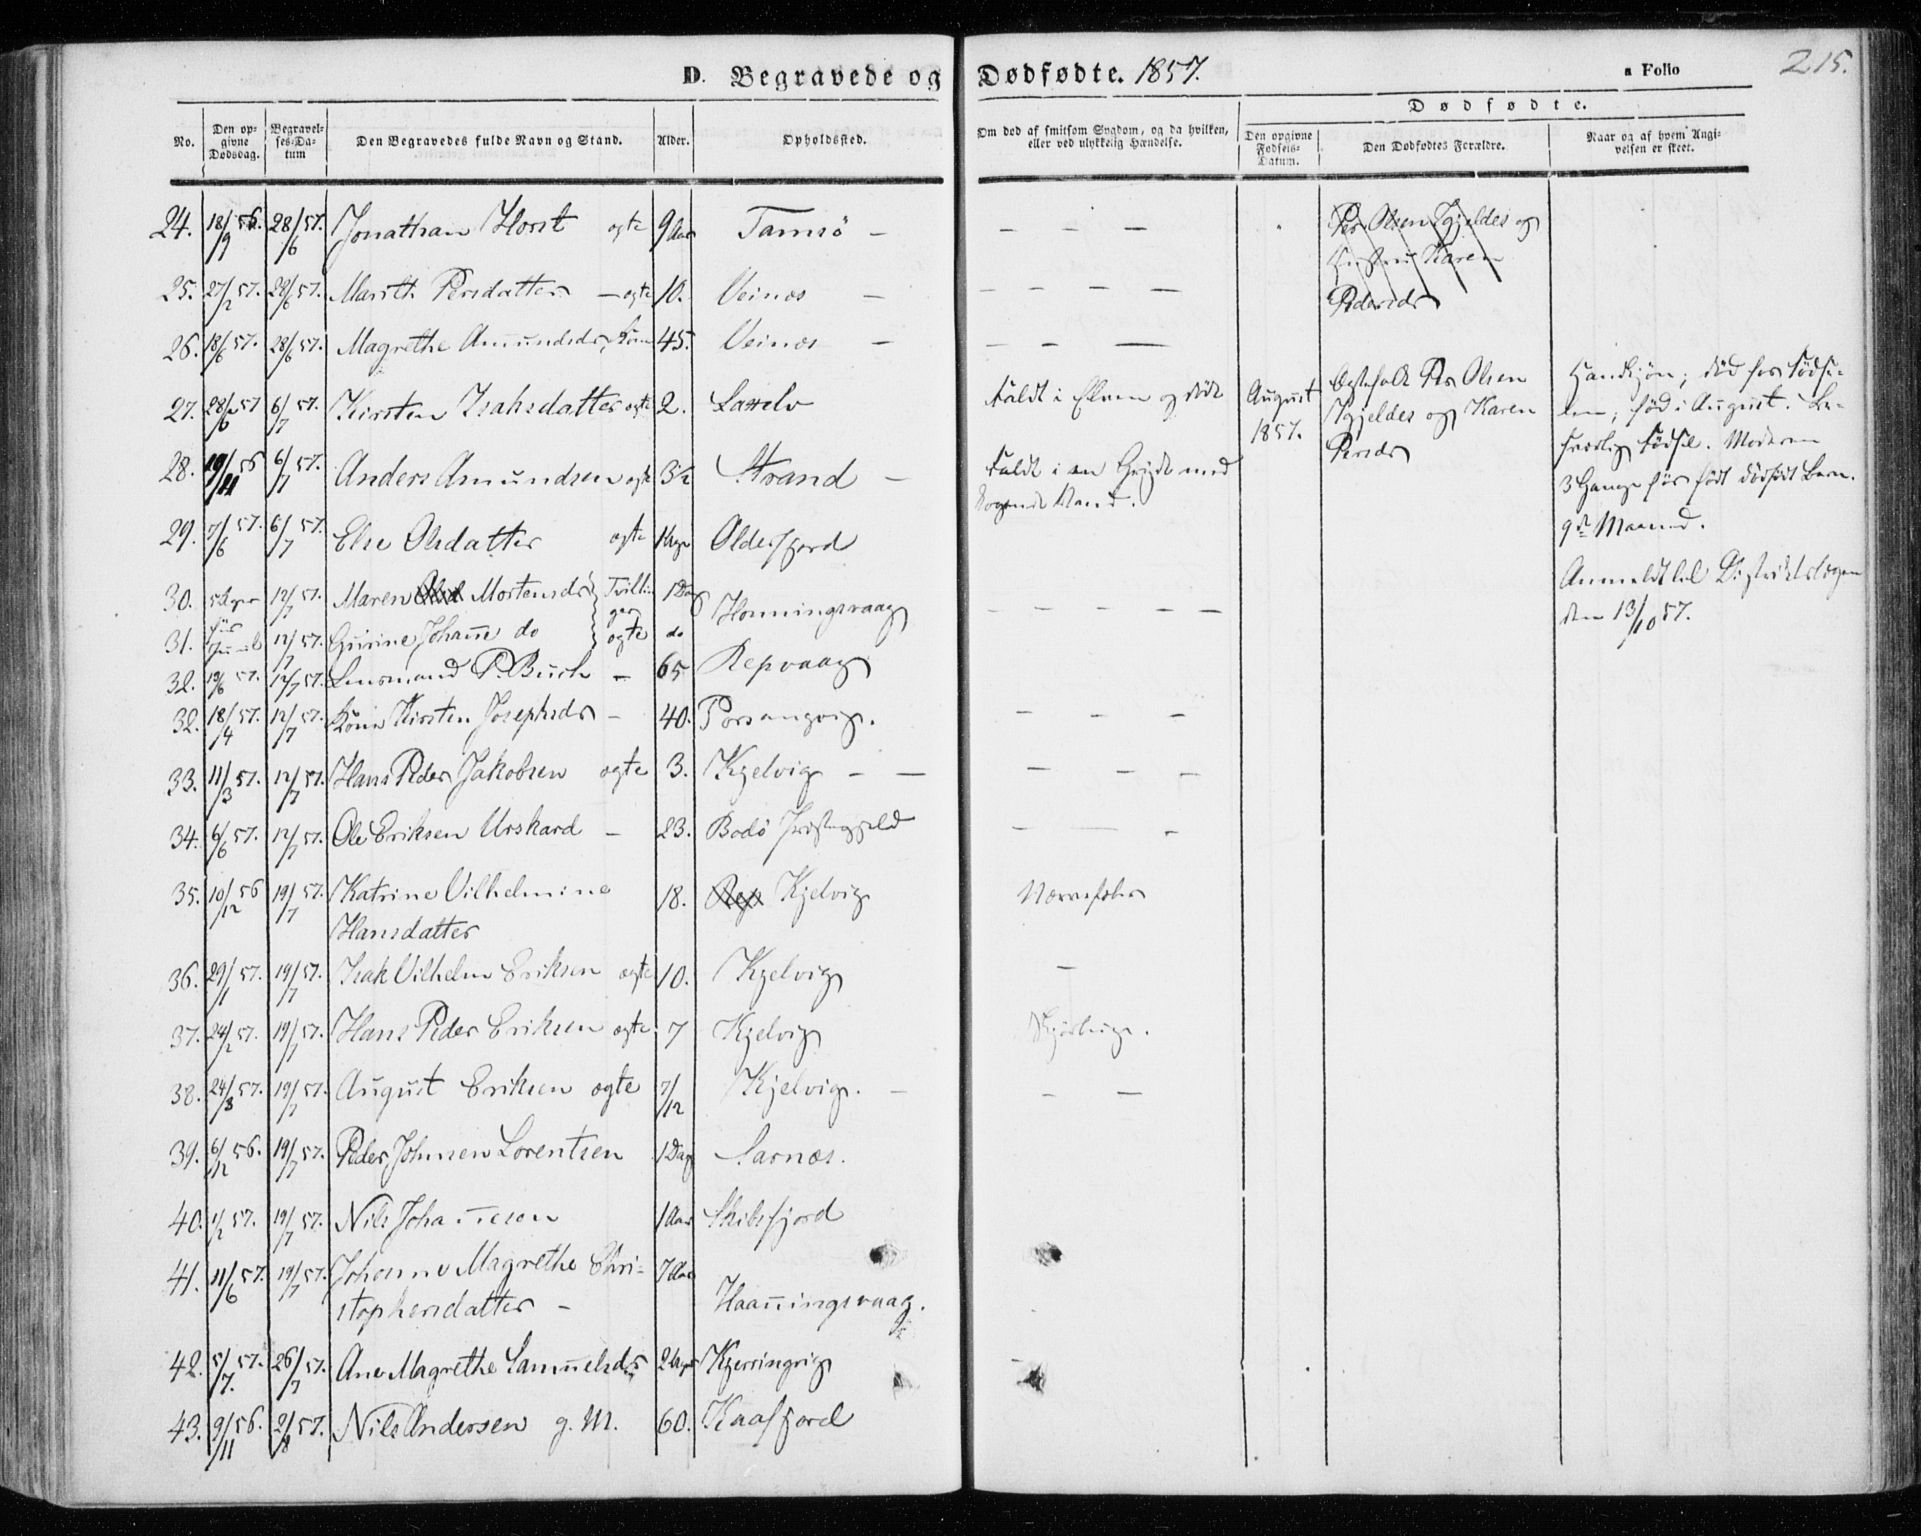 D. Begravede og Dødfødte. 1857.
a Folio
215.
No.
Den opgivne Dødsdag.
Begravelses-Datum
Den Begravedes fulde Navn og Stand.
Alder.
Opholdssted.
Om død af smitsom Sygdom, og da hvilken, eller ved ulykkelig Hændelse.
Dødfødte.
Den opgivne Fødsels-Datum.
Den Dødfødtes Forældre.
Naar og af hvem Angivelsen er skeet.
24. 18/9 56. 28/6 57. Jonathan Horst ogte 9 Aar Tamsö – – – –
25. 27/2 57. 28/6 57. Marith Persdatter – ogte 10. Veines – – – – –
26. 18/6 57. 28/6 57. Magrethe Amundsdr, Kone 45. Veines – – – –
27. 28/6 57 6/7 57. Kirsten Isaksdatter ogte 2. Laxelv Faldt i Elven og døde
28. 19/11 56 6/7 57. Anders Amundsen ogte 3½ Strand – Faldt i en Gryde med kogende Vand.
29. 7/6 57. 6/7 57. Else Olsdatter ogte Olderfjord
30. 12/7 57. Maren Mortensdr Tvillinger 1 Dag Honningsvaag – – – –
31. 12/7 57. Gurine Johanne do ogte do
32. 19/6 57. 12/7 57. Lensmand P. Buch – 65 Repvaag
32. 18/4 57. 12/7 57. Kone Kirsten Josephsdr – 40. Porsangvig. – – –
33. 11/3 57. 12/7 57. Hans Peder Jakobsen ogte 3. Kjelvig – – – – –
34. 6/6 57. 12/7 57. Ole Eriksen Urskard – 23. Bodö Præstegjeld – – –
35. 10/12 56 19/7 57. Katrine Vilhelmine
Hansdatter 18. Kjelvig Nervefeber
36. 29/1 57. 19/7 57. Isak Vilhelm Eriksen ogte 10. Kjelvig –
37. 24/2 57. 19/7 57. Hans Peder Eriksen ogte 7 Kjelvig Skjörbug.
38. 24/3 57. 19/7 57. August Eriksen ogte 7/12 Kjelvig. – – –
39. 6/12 56. 19/7 57. Peder Johnsen Lorentsen 1 Dag Sarnæs.
40. 1/2 57. 19/7 57. Nils Johannesen 1 Aar Skibsfjord
41. 11/6 57. 19/7 57. Johanne Magrethe Chri-
stophersdatter – 7 Aar Haanningsvaag.
42. 5/7 57. 26/7 57. Ane Magrethe Samuelsdr Kjerringvig
43. 9/11 56. 2/8 57. Nils Andersen g. M. 60. Kaafjord
Per Olsen Kjeldes og
Hustru Karen
Pedersdr
August
1857.
Ægtefolk Per Olsen
Kjeldes og Karen
Persdr
Handkjön; död för Födse-
len; föd i August. Be-
sværlig Födsel. Moderen
3 Gange för födt dödfödt Barn.
9de Maaned.
Anmeldt til Distriktslægen
den 13/10 57.